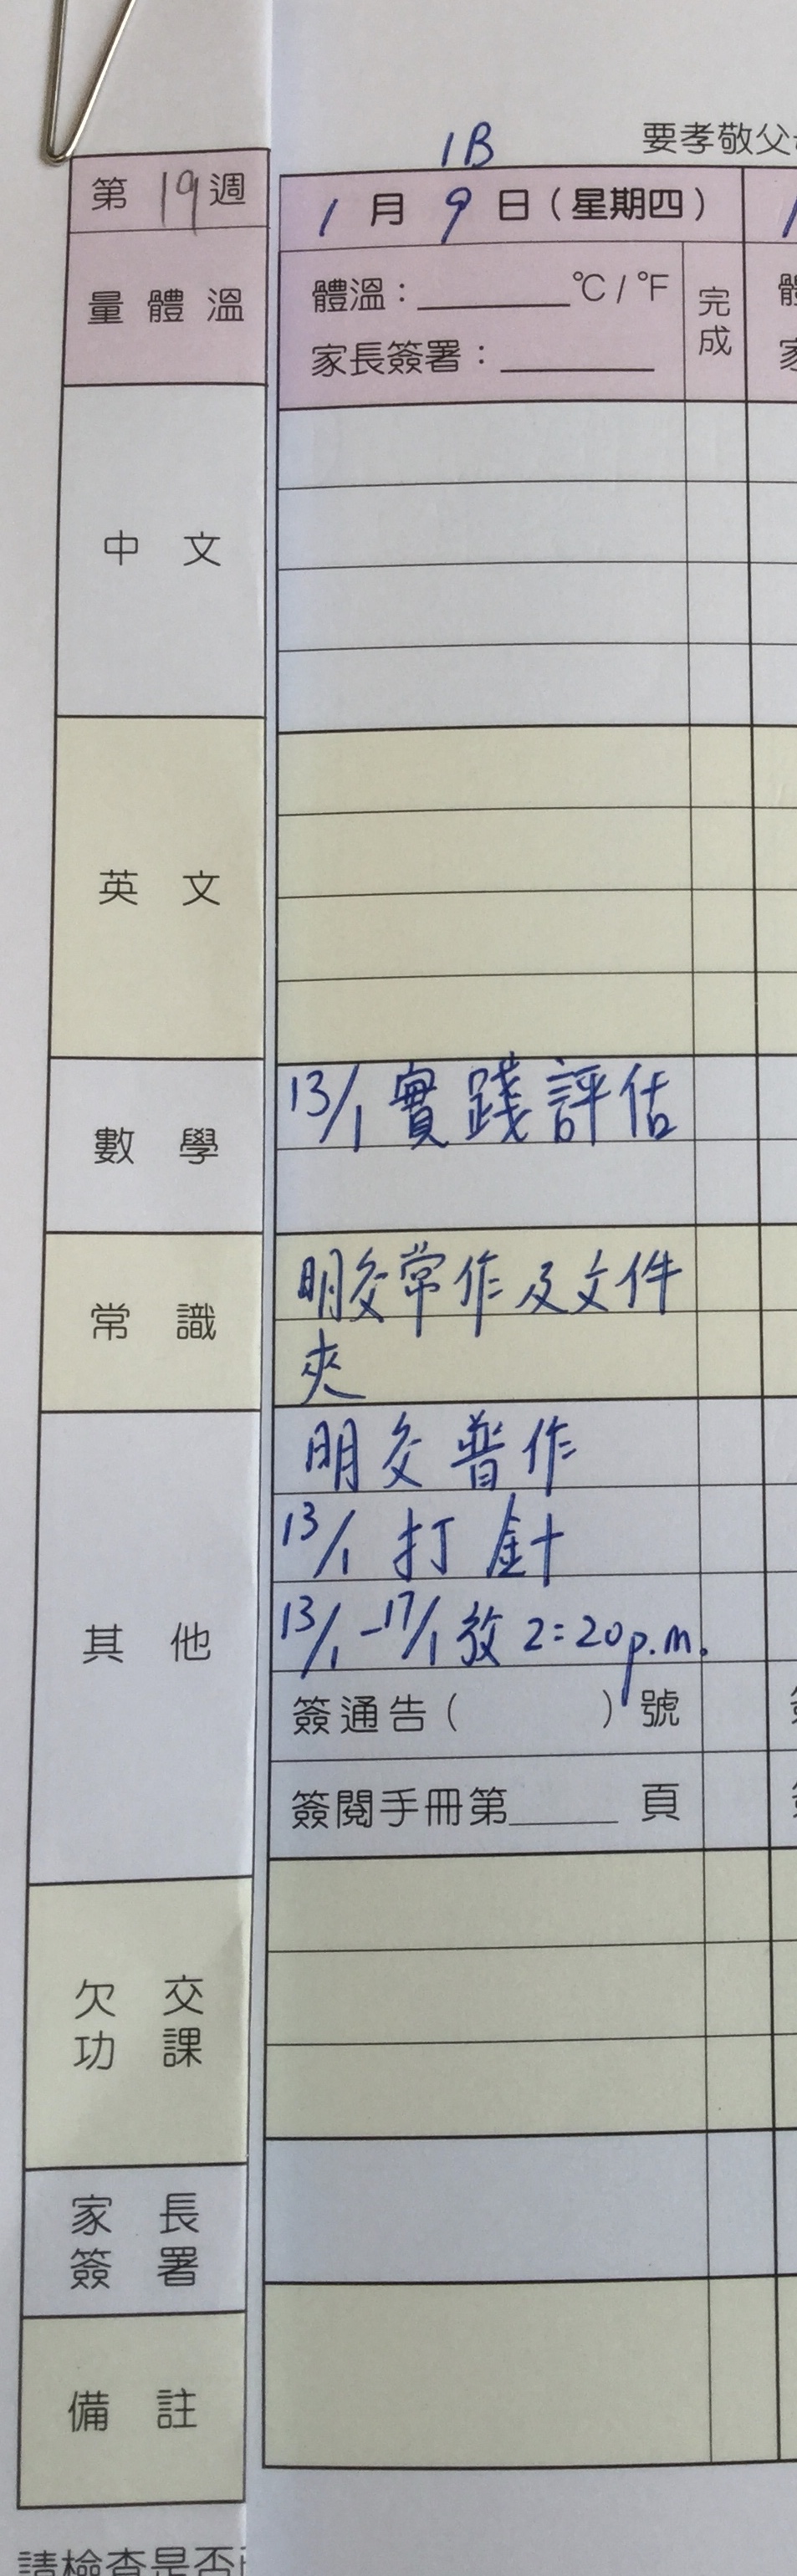 1B
要孝敬父
第19週
1月9日(星期四)
量體溫
體溫:______°C/°F
完成
家長簽署:______
中文
英文
數學
13/1 實踐評估
常識
明交常作及文件
夾
其他
明交普作
13/1 打針
13/1-17/1 放 2:20p.m.
簽通告( )號
簽閱手冊第____頁
欠交
功課
家長
簽署
備註
請檢查是否